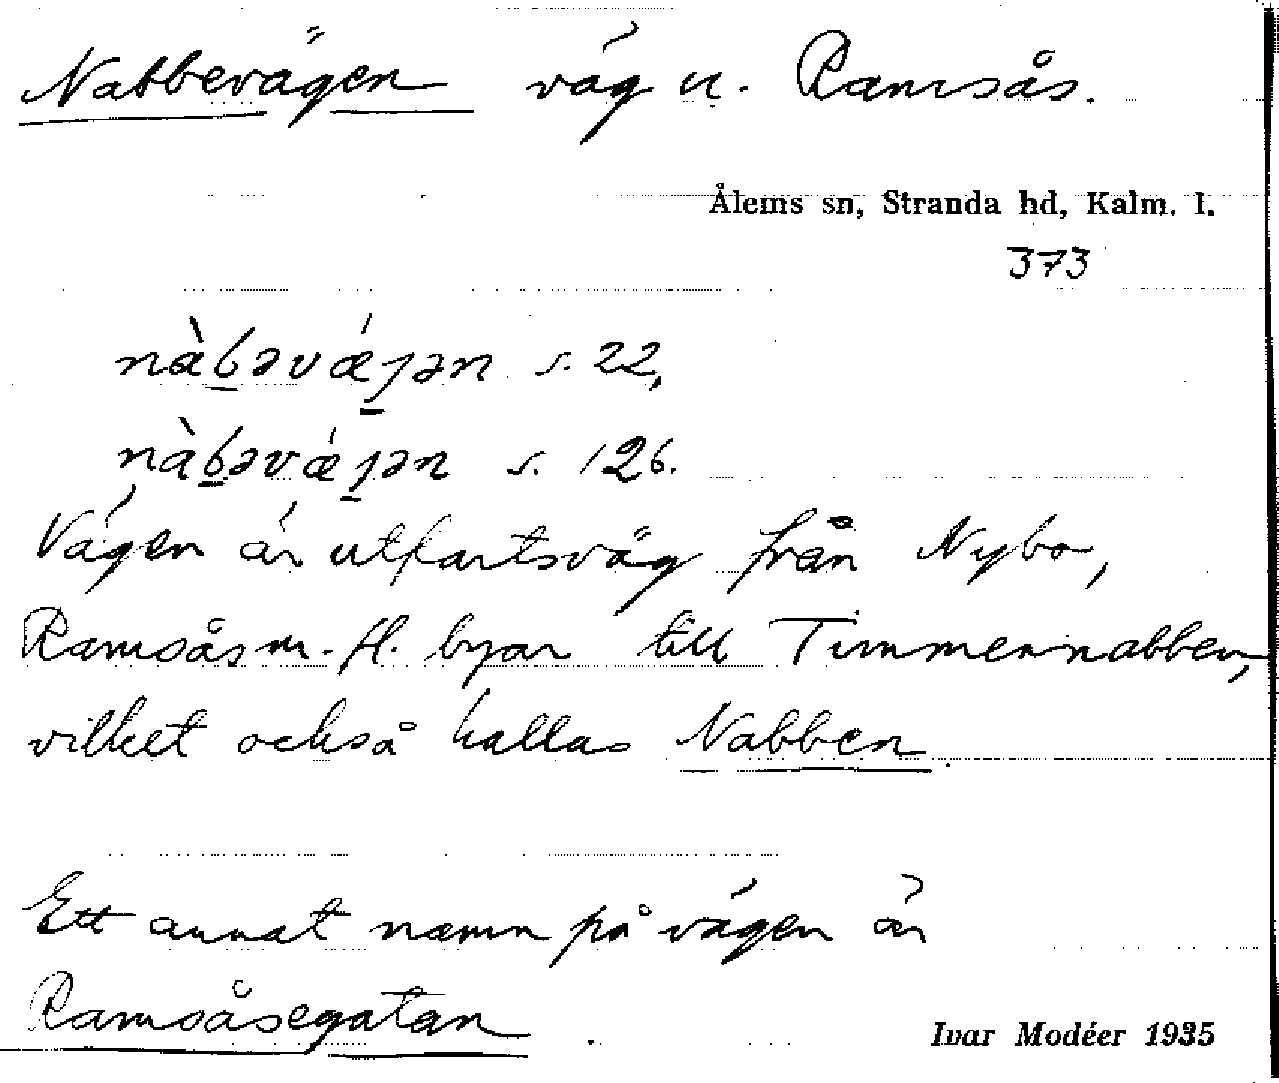 Nabbevägen väg u. Ramsås.
Ålems sn, Stranda hd, Kalm. l.
373
nàbəvǽȷən s. 22,
nàbəvǽȷən s. 126.
Vägen är utfartsväg från Nybo,
Ramsås m. fl. byar till Timmernabben,
vilket också kallas Nabben.
Ett annat namn på vägen är
Ramsåsegatan.
Ivar Modéer 1935